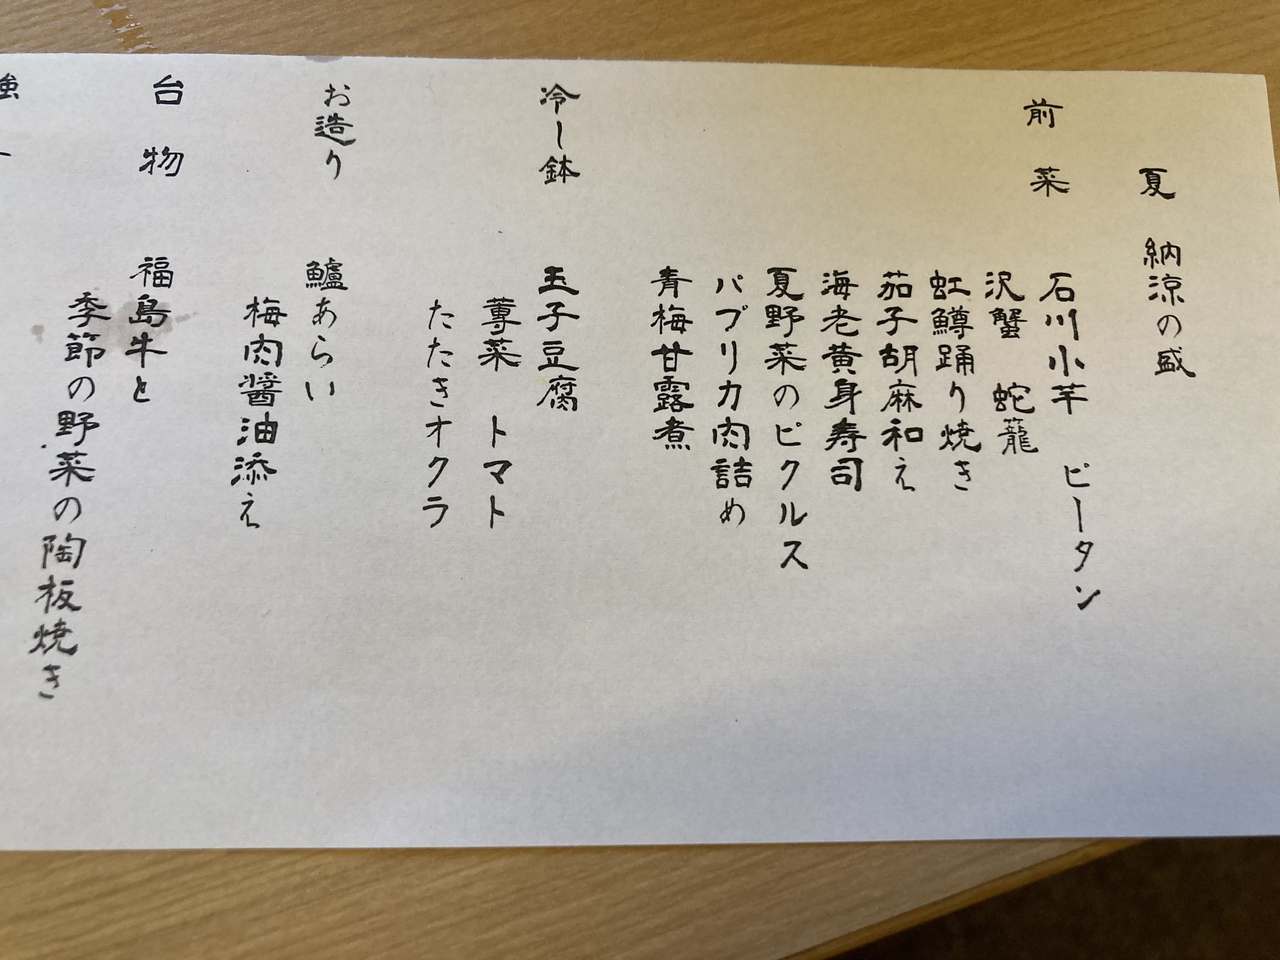 夏 納涼の盛
前菜
石川小芋 ピータン
沢蟹 蛇籠
虹鱒踊り焼き
茄子胡麻和え
海老黄身寿司
夏野菜のピクルス
パプリカ肉詰め
青梅甘露煮
冷し鉢
玉子豆腐
蓴菜 トマト
たたきオクラ
お造り
鱸あらい
梅肉醤油添え
台物
福島牛と
季節の野菜の陶板焼き
強